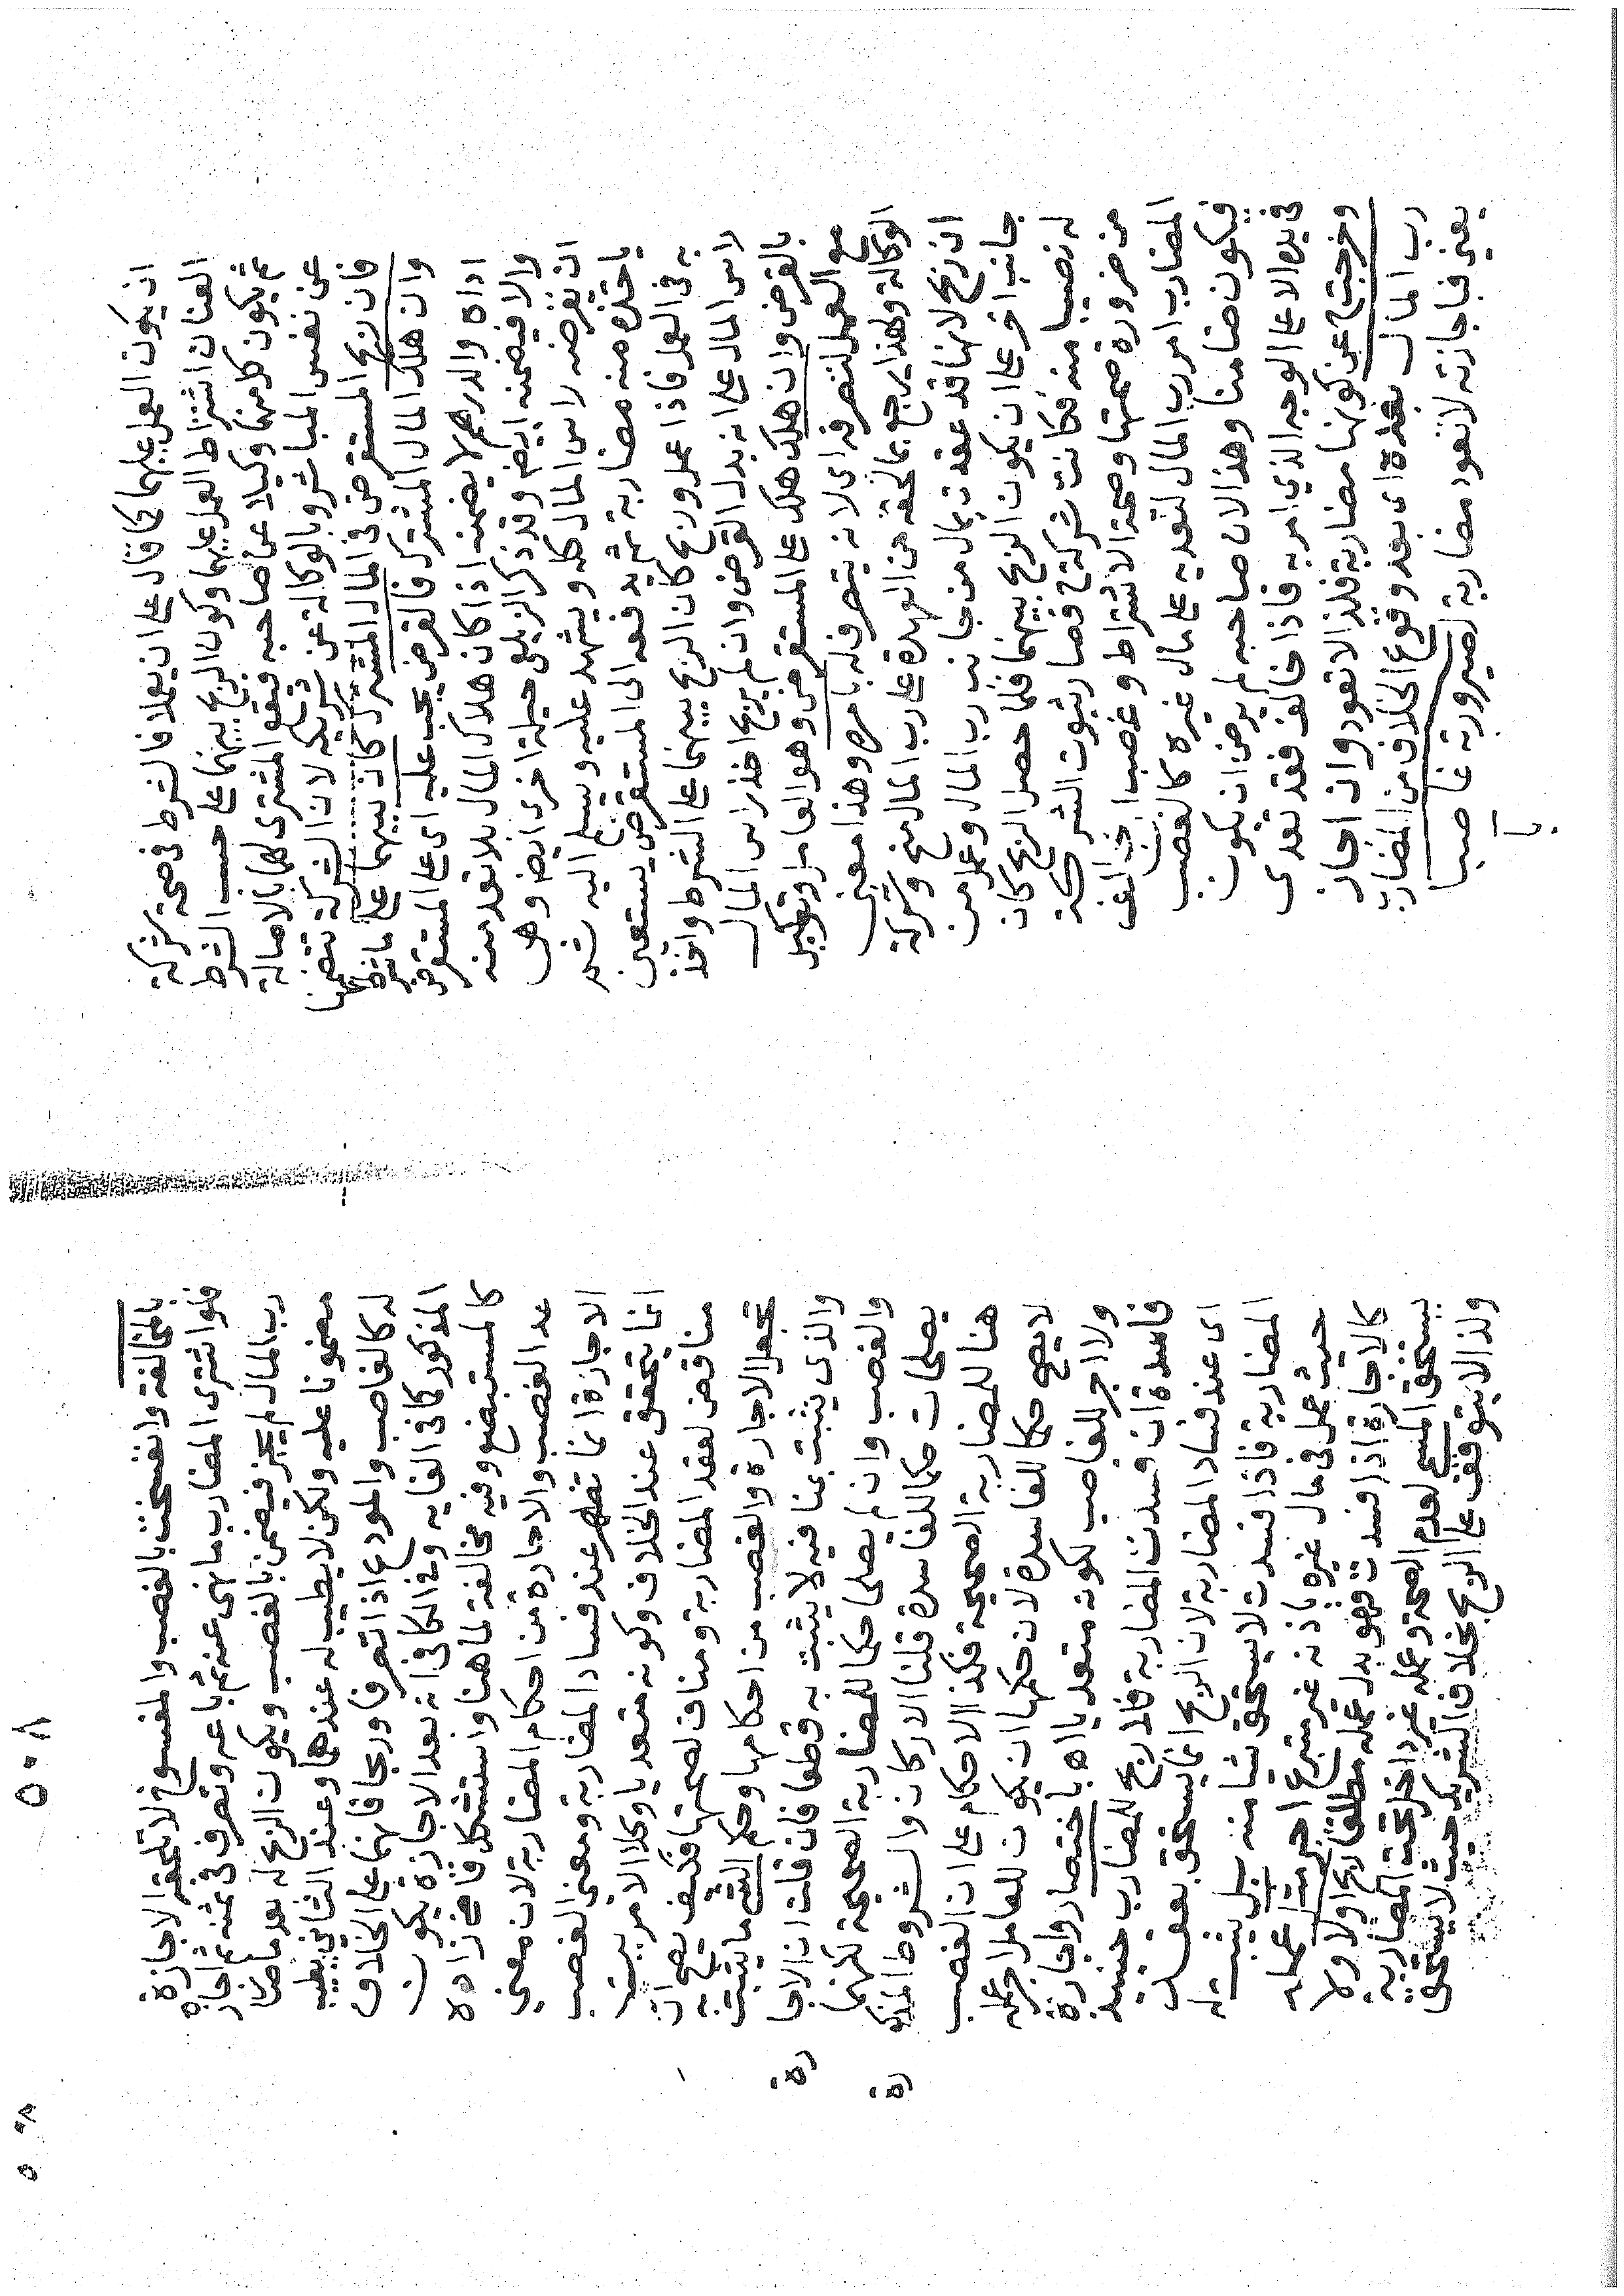 ان يكون العمل عليهما كما قال على ان يعملا فالشرط في صحة شركة
العنان اشتراط العمل عليهما وكون الربح بينهما على حسب الشرط
ثم يكون كل منهما وكيلا عن صاحبه فيقع المشترى لهما بالاصالة
عن نفس المباشر وبالوكالة عن شريكه لان الشركة تتضمنها
فان ربح المستقرض في المال المشترك كان بينهما على ما شرط
وان هلك المال المشترك فالقرض يجب عليه اى على المستقرض
اداه والدرهم لا يضمنه اذا كان هلاك المال بلا تعد منه
والا فيضمنه ايض وقد ذكر الزيلعي حيلة اخرى ايض وهى
ان يقرضه راس المال كله ويشهد عليه ويسلم اليه ثم
ياخذه منه مضاربة ثم يدفعه الى المستقرض يستعين
به في العمل فاذا عمل وربح كان الربح بينهما على الشرط واخذ
راس المال على انه بدل القرض وان لم يربح اخذ راس المال
بالقرض وان هلك هلك على المستقرض وهو العامل وتوكيل
مع العمل لتصرفه اى لانه يتصرف له بامره وهذا معنى
الوكالة ولهذا يرجع بما لحقه من العهدة على رب المال منح وشركة
ان ربح لانها قد عقدت بمال من جانب رب المال وعمل من
جانب اخر على ان يكون الربح بينهما فلما حصل الربح كان
له نصيبا منه فكانت شركة منح فصار ثبوت الشركة
من ضرورة صحتها وصحة الاشتراط وغصب ان خالف
المضارب امر رب المال لتعديه على مال غيره كالغصب
فيكون ضامنا وهذا لان صاحبه لم يرض ان يكون
في يده الا على الوجه الذي امر به فاذا خالف فقد تعدى
وخرجت عن كونها مضاربة فلذا لا تعود وان اجاز
رب المال بعده اى بعد وقوع الخلاف من المضارب
يعني فباجازته لا تعود مضاربة لصيرورته غاصبا
با
٥٠٨
بالمخالفة وانفسخت بالغصب والمفسوخ لا تلحقه الاجازة
فلو اشترى المضارب ما نهى عنه ثم باعه وتصرف في ثمنه ثم اجازه
رب المال لم يجز فيضمن بالغصب ويكون الربح له بعد ما صار
مضمونا عليه ولكن لا يطيب له عندهما وعند الثاني يطيب
له كالغاصب والمودع اذا تصرفا وربحا فانهما على الخلاف
المذكور كما في الغايه وفي الكافي انه بعد الاجازة يكون
كالمستبضع وفيه مخالفة لما هنا واستشكل قاضي زاده
عد الغصب والاجارة من احكام المضاربة لان معنى
الاجازة انما تظهر عند فساد المضاربة ومعنى الغصب
انما يتحقق عند الخلاف وكونه متعديا وكلا الامرين
مناقض لعقد المضاربة ومناف لصحتها فكيف يصح ان
تجعل الاجارة والغصب من احكامها وحكم الشئ ما يثبت به
والذى يثبت بمنافيه لا يثبت به قطعا فان قلت ان الاجارة
والغصب وان لم يصلحا حكما للمضاربة الصحيحة لكنهما
يصلحان حكما للفاسدة قلنا الاركان والشروط المذكورة
هنا للمضاربة الصحيحة فكذا الاحكام على ان الغصب
لا يصح حكما للفاسدة لان حكمها ان يكون للعامل اجر عمله
ولا اجر للغاصب لكونه متعديا اه باختصار واجارة
فاسدة ان فسدت المضاربة فلا ربح للمضارب حينئذ
اى عند فساد المضاربة لان الربح انما يستحق بعقد
المضاربة فاذا فسدت لا يستحق شيا منه بل يثبت له
حيث عمل في مال غيره باذنه غير متبرع اجر مثل عمله
كالاجارة اذا فسدت فهو بدل عمله مطلقا ربح اولا ولا
يستحق المسمى لعدم الصحة وعمله غير داخل تحت المضاربة
ولذا لا يتوقف على الربح بخلاف الشريك حيث لا يستحق